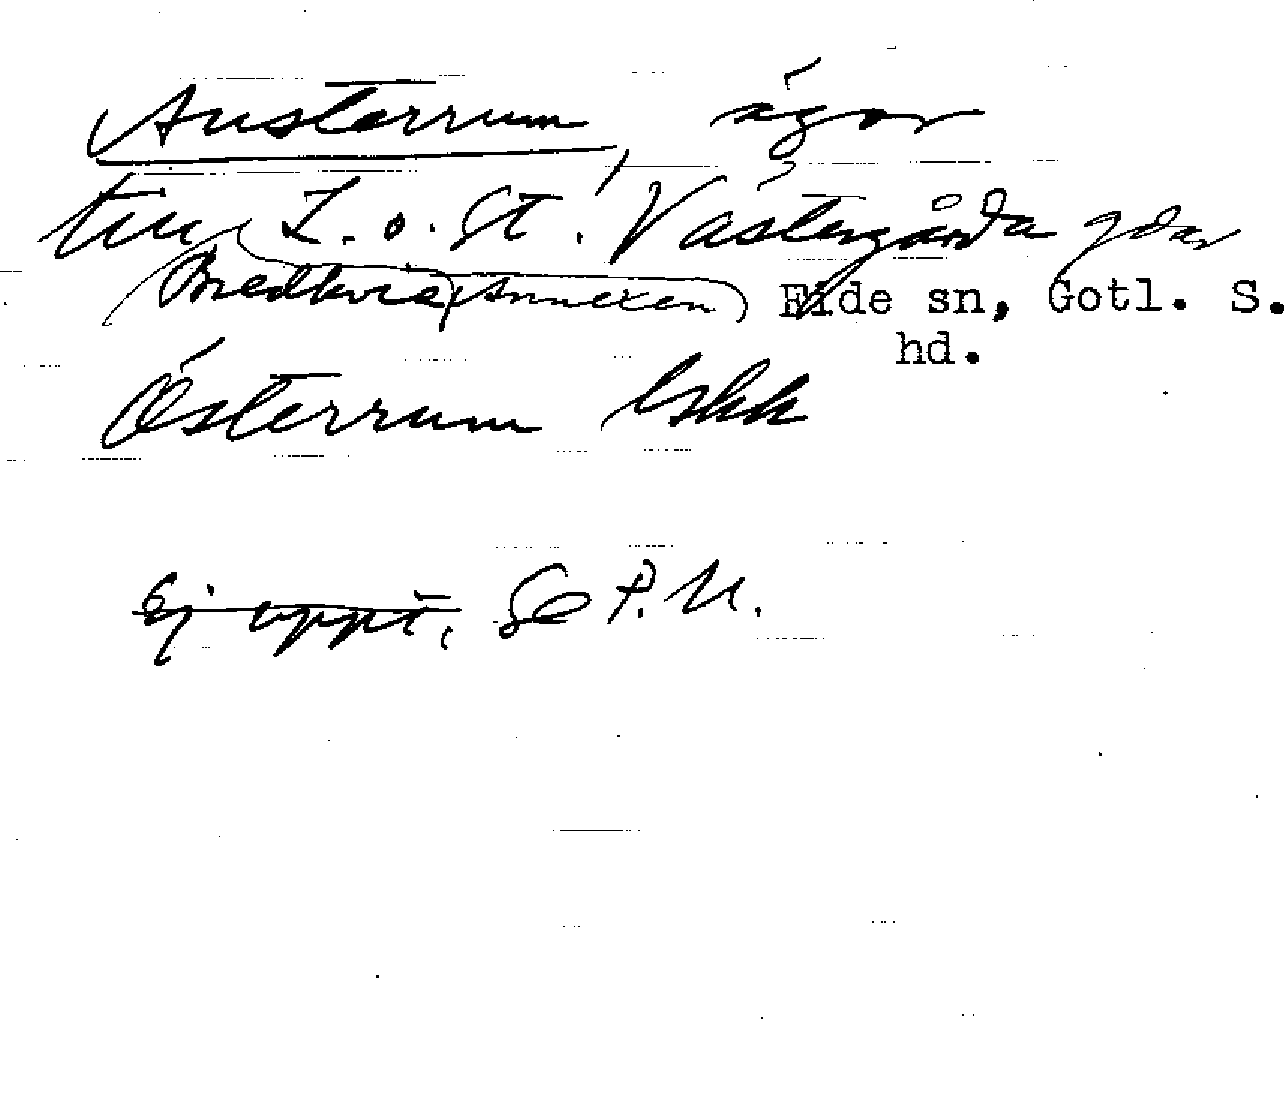 Austerrum, ägor
till L. o. St. Västergårda gdar
(Bredkvie, Annexen) Eide sn, Gotl. S.
hd.
Österrum lskk
Ej uppt. Se P. U.